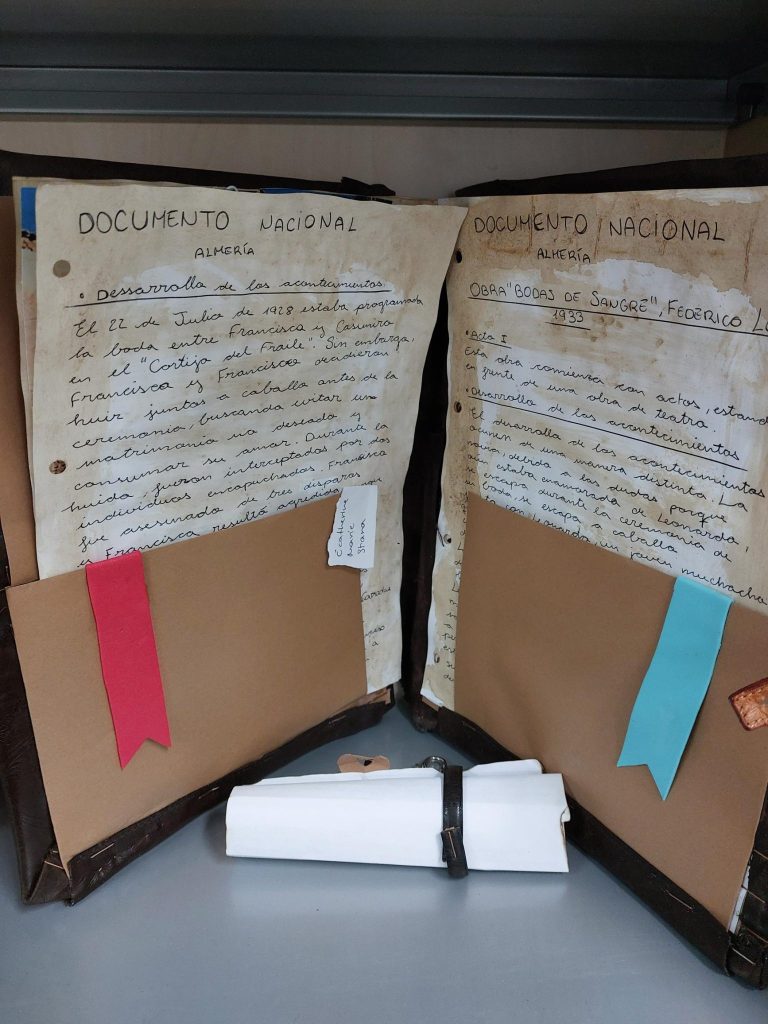 DOCUMENTO NACIONAL
ALMERÍA
• Dessarrollo de los acontecimientos.
El 22 de Julio de 1928 estaba programada
la boda entre Francisca y Casimiro
en el "Cortijo del Fraile". Sin embargo,
Francisca y Francisco decidieron
huir juntos a caballo antes de la
ceremonia, buscando evitar un
matrimonio no deseado y
consumar su amor. Durante la
huida, fueron interceptados por dos
individuos encapuchados. Francisco
fue asesinado de tres disparos
y Francisca resultó agredida
Marie
DOCUMENTO NACIONAL
ALMERÍA
OBRA "BODAS DE SANGRE", FEDERICO
1933
• Acto I
Esta obra comienza con actos, estando
en frente de una obra de teatro.
• Desarrollo de los acontecimientos
El desarrollo de los acontecimientos
ocurren de una manera distinta. La
novia, debido a las dudas porque
aún estaba enamorada de Leonardo,
se escapa durante la ceremonia de
su boda, se escapa a caballo
con Leonardo, un joven muchacho